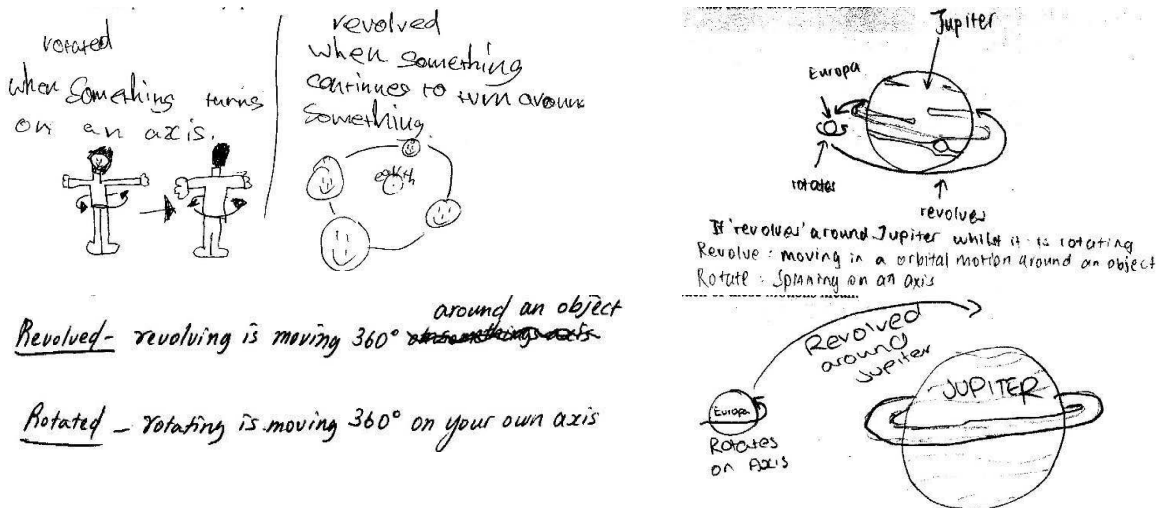 rotated
when something turns
on an axis.
revolved
when something
continues to turn around
something.
earth
around an object
Revolved - revolving is moving 360° on somethings axis
Rotated - rotating is moving 360° on your own axis
Jupiter
Europa
rotates
revolves
It 'revolves' around Jupiter whilst it is rotating
Revolve : moving in a orbital motion around an object
Rotate : Spinning on an axis
Revolved
around
Jupiter
JUPITER
Europa
Rotates
on Axis